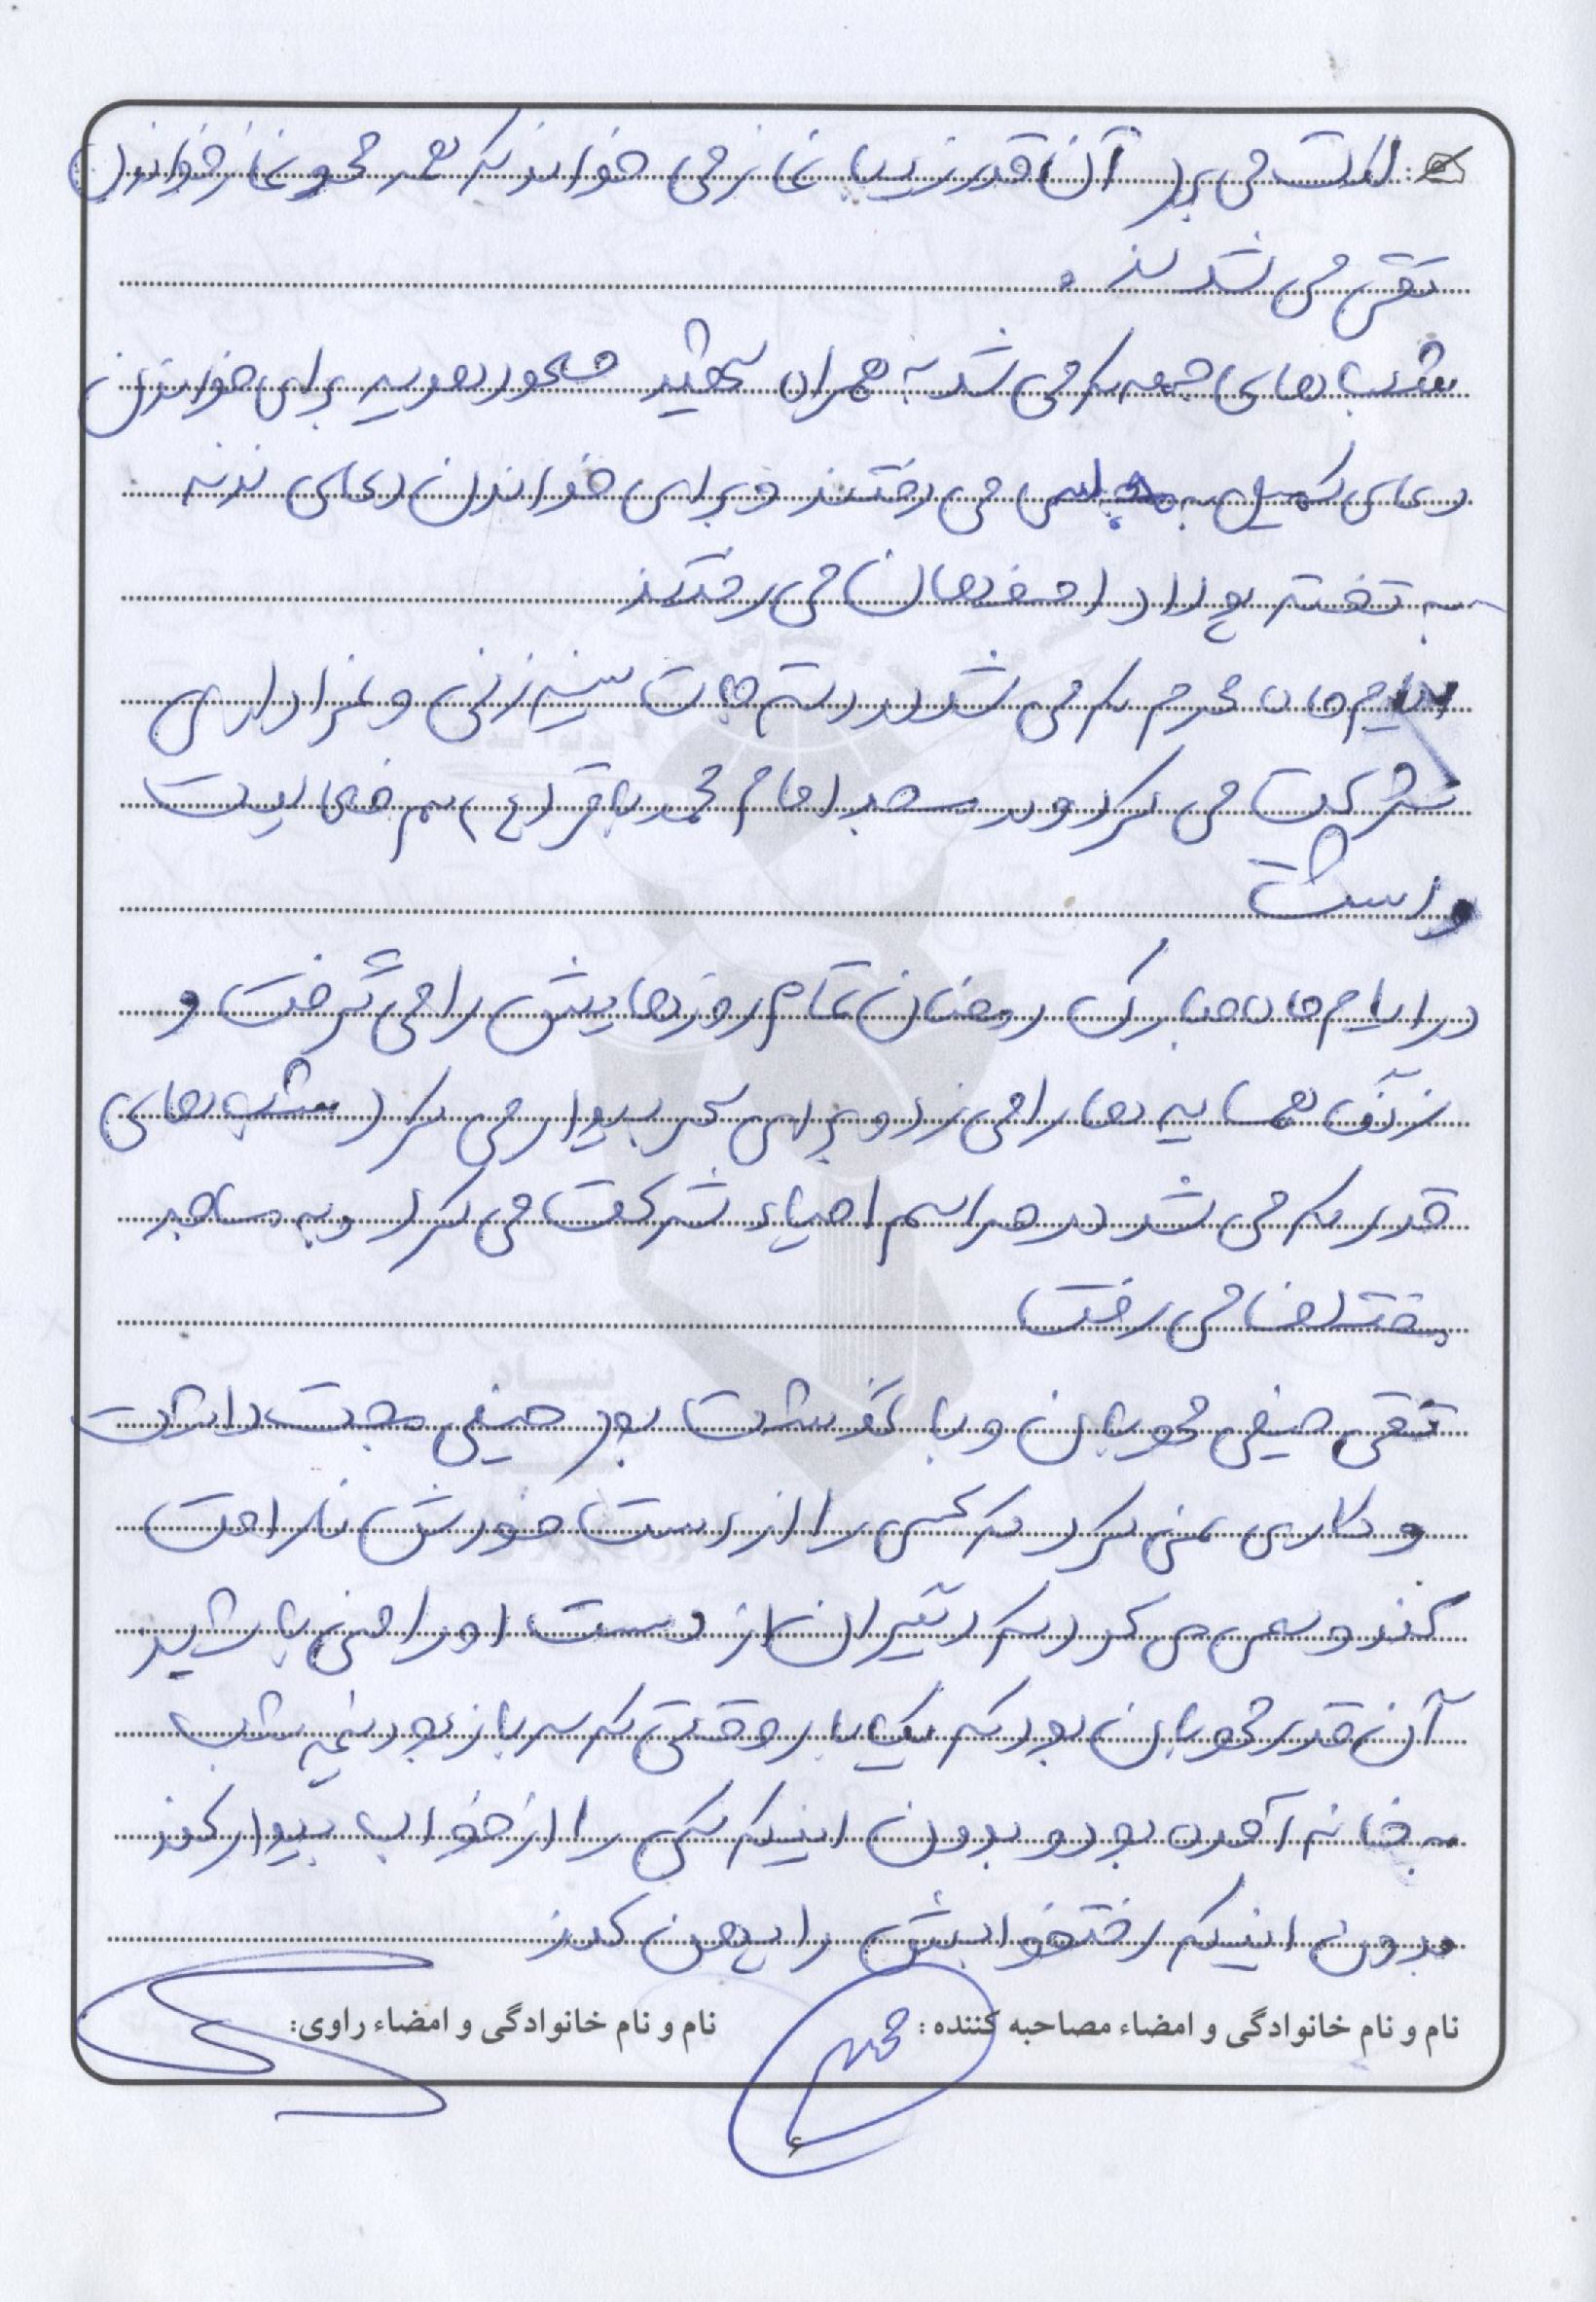 لذت می برد آن قدر زیبا نماز می خواند که همه محو نماز خواندن
تقی می شدند .
شب های جمعه که می شد به همراه شهید مسعود هویه برای خواندن
دعای کمیل به می رفتند و برای خواندن دعای ندبه
به تخته پولاد اصفهان می رفتند
ایام ماه محرم که می شد در دسته جات سینه زنی و عزاداری
شرکت می کرد و در مسجد امام محمد باقر (ع) هم فعالیت
داشت
در ایام ماه مبارک رمضان تمام روزهایش را می گرفت و
زنگ همسایه ها را می زد و برای سحر بیدار می کرد شب های
قدر که می شد در مراسم احیاء شرکت می کرد و به مساجد
مختلف می رفت
تقی خیلی مهربان و با گذشت بود خیلی محبت داشت
و کاری نمی کرد که کسی را از دست خودش ناراحت
کند و سعی می کرد که دیگران از دست او راضی باشند
آن قدر مهربان بود که یک بار وقتی که سرباز بود نیمه شب
به خانه آمده بود و بدون اینکه کسی را از خواب بیدار کند
بدون اینکه رختخوابش را پهن کند
نام و نام خانوادگی و امضاء مصاحبه کننده : نام و نام خانوادگی و امضاء راوی:
۶